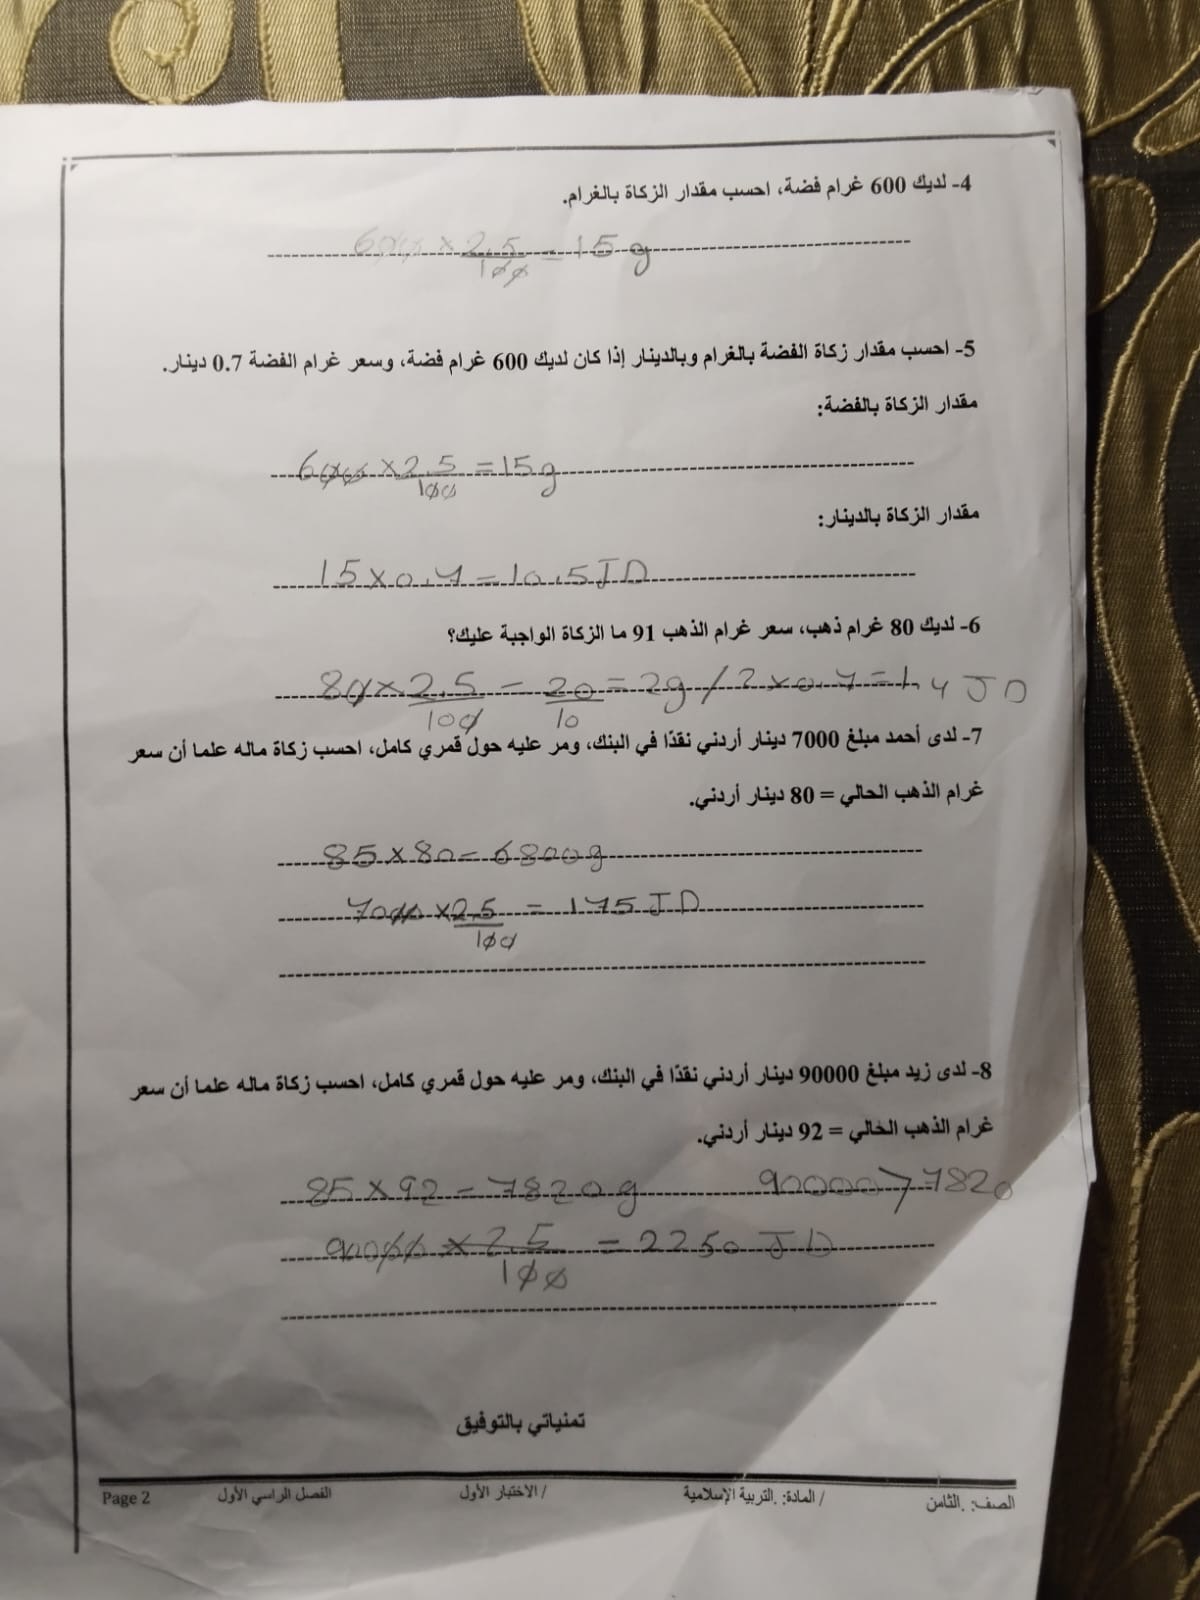 4- لديك 600 غرام فضة، احسب مقدار الزكاة بالغرام.
600 × 2.5/100 = 15 g
5- احسب مقدار زكاة الفضة بالغرام وبالدينار إذا كان لديك 600 غرام فضة، وسعر غرام الفضة 0.7 دينار.
مقدار الزكاة بالفضة:
600 × 2.5/100 = 15 g
مقدار الزكاة بالدينار:
15 × 0.7 = 10.5 JD
6- لديك 80 غرام ذهب، سعر غرام الذهب 91 ما الزكاة الواجبة عليك؟
80 × 2.5/100 = 20/10 = 2g / 2 × 0.7 = 1.4 JD
7- لدى أحمد مبلغ 7000 دينار أردني نقدًا في البنك، ومر عليه حول قمري كامل، احسب زكاة ماله علما أن سعر
غرام الذهب الحالي = 80 دينار أردني.
85 × 80 = 6800g
7000 × 2.5/100 = 175 JD
8- لدى زيد مبلغ 90000 دينار أردني نقدًا في البنك، ومر عليه حول قمري كامل، احسب زكاة ماله علما أن سعر
غرام الذهب الحالي = 92 دينار أردني.
85 × 92 = 7820 g 90000 > 7820
90000 × 2.5/100 = 2250 JD
تمنياتي بالتوفيق
الصف: .الثامن / المادة: .التربية الإسلامية / الاختبار الأول الفصل الراسي الأول Page 2